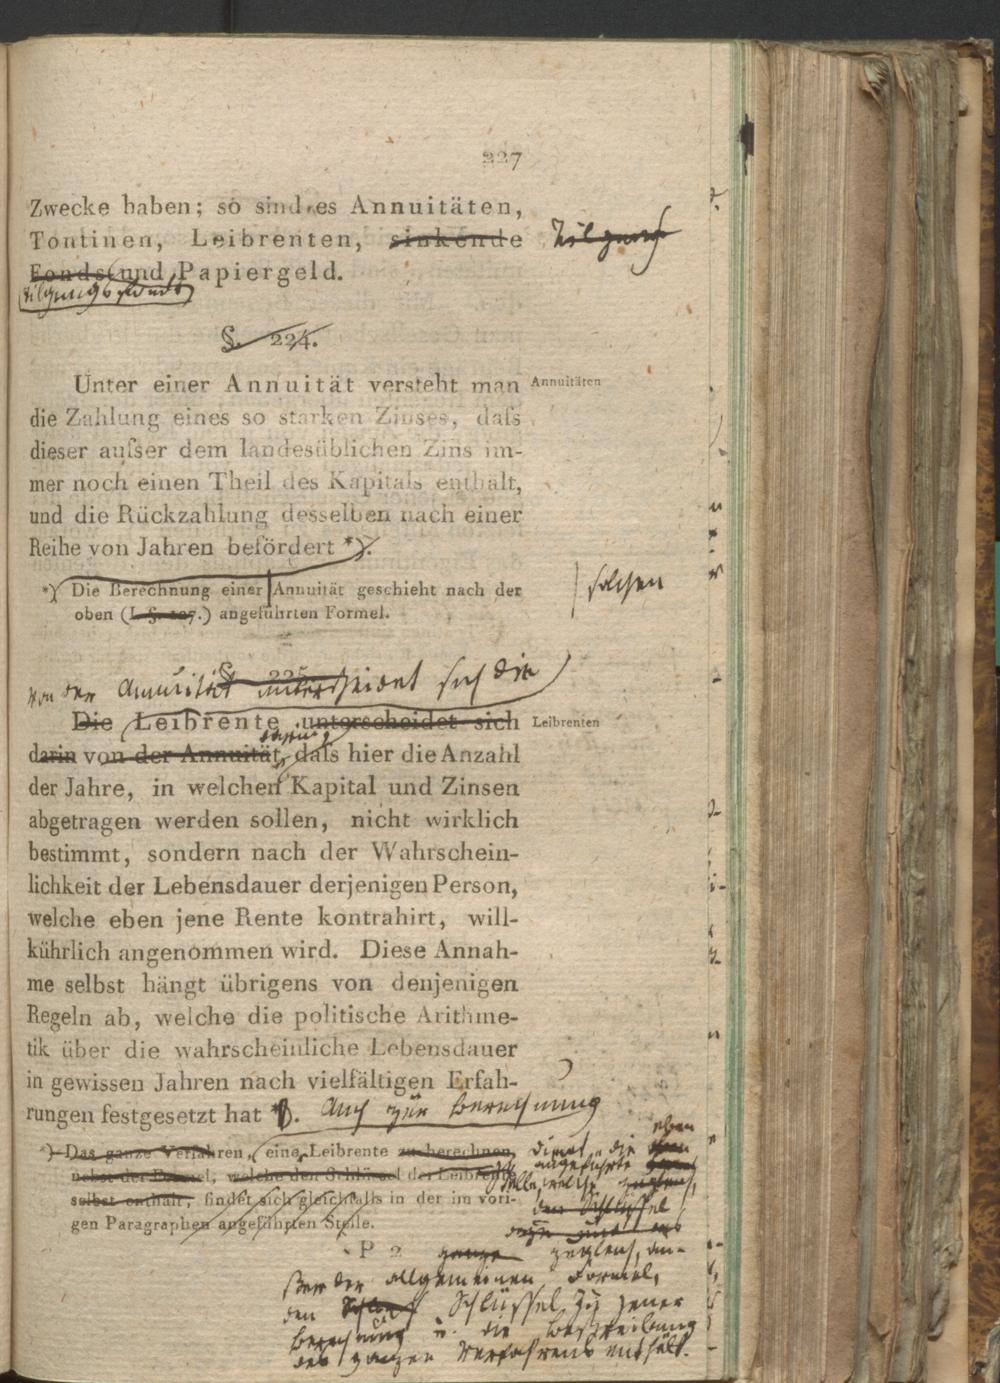 227
Zwecke haben; so sind es Annuitäten,
Tontinen, Leibrenten, sinkende Tilgungs
Fonds und Papiergeld.
Tilgungsfonds
§. 224.
Unter einer Annuität versteht man Annuitäten
die Zahlung eines so starken Zinses, daſs
dieser auſser dem landesüblichen Zins im-
mer noch einen Theil des Kapitals enthält,
und die Rückzahlung desselben nach einer
Reihe von Jahren befördert *).
*) Die Berechnung einer Annuität geschieht nach der solchen
oben (I. §. 107.) angeführten Formel.
§. 225.
Von der Annuität unterscheidet sich die
Die Leibrente unterscheidet sich Leibrenten
darin von der Annuität, daſs hier die Anzahl
der Jahre, in welchen Kapital und Zinsen
abgetragen werden sollen, nicht wirklich
bestimmt, sondern nach der Wahrschein-
lichkeit der Lebensdauer derjenigen Person,
welche eben jene Rente kontrahirt, will-
kührlich angenommen wird. Diese Annah-
me selbst hängt übrigens von denjenigen
Regeln ab, welche die politische Arithme-
tik über die wahrscheinliche Lebensdauer
in gewissen Jahren nach vielfältigen Erfah-
rungen festgesetzt hat *). Auch zur Berechnung
*) Das ganze Verfahren, eine Leibrente zu berechnen, dient die eben
nebst der Formel, welche den Schlüssel der Leibrente angeführte
selbst enthält, findet sich gleichfalls in der im vori- Stelle, welche
gen Paragraphen angeführten Stelle. den Schlüssel
P 2 ganze zugleich, au-
ßer der allgemeinen Formel,
den Schlüssel zu jener
Berechnung u. die Beschreibung
des ganzen Verfahrens enthält.